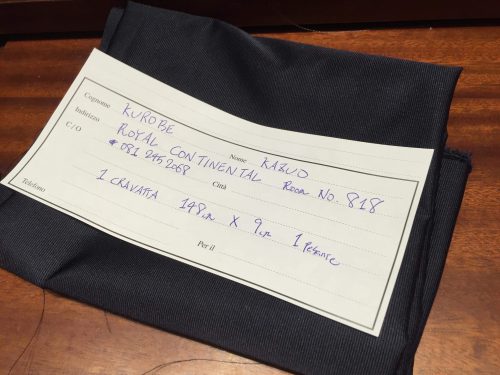 Cognome KUROBE Nome KAZUO
Indirizzo ROYAL CONTINENTAL Room No. 818
C/O # 081 245 2068 Città
1 CRAVATTA 148cm X 9cm 1 PESANTE
Telefono Per il